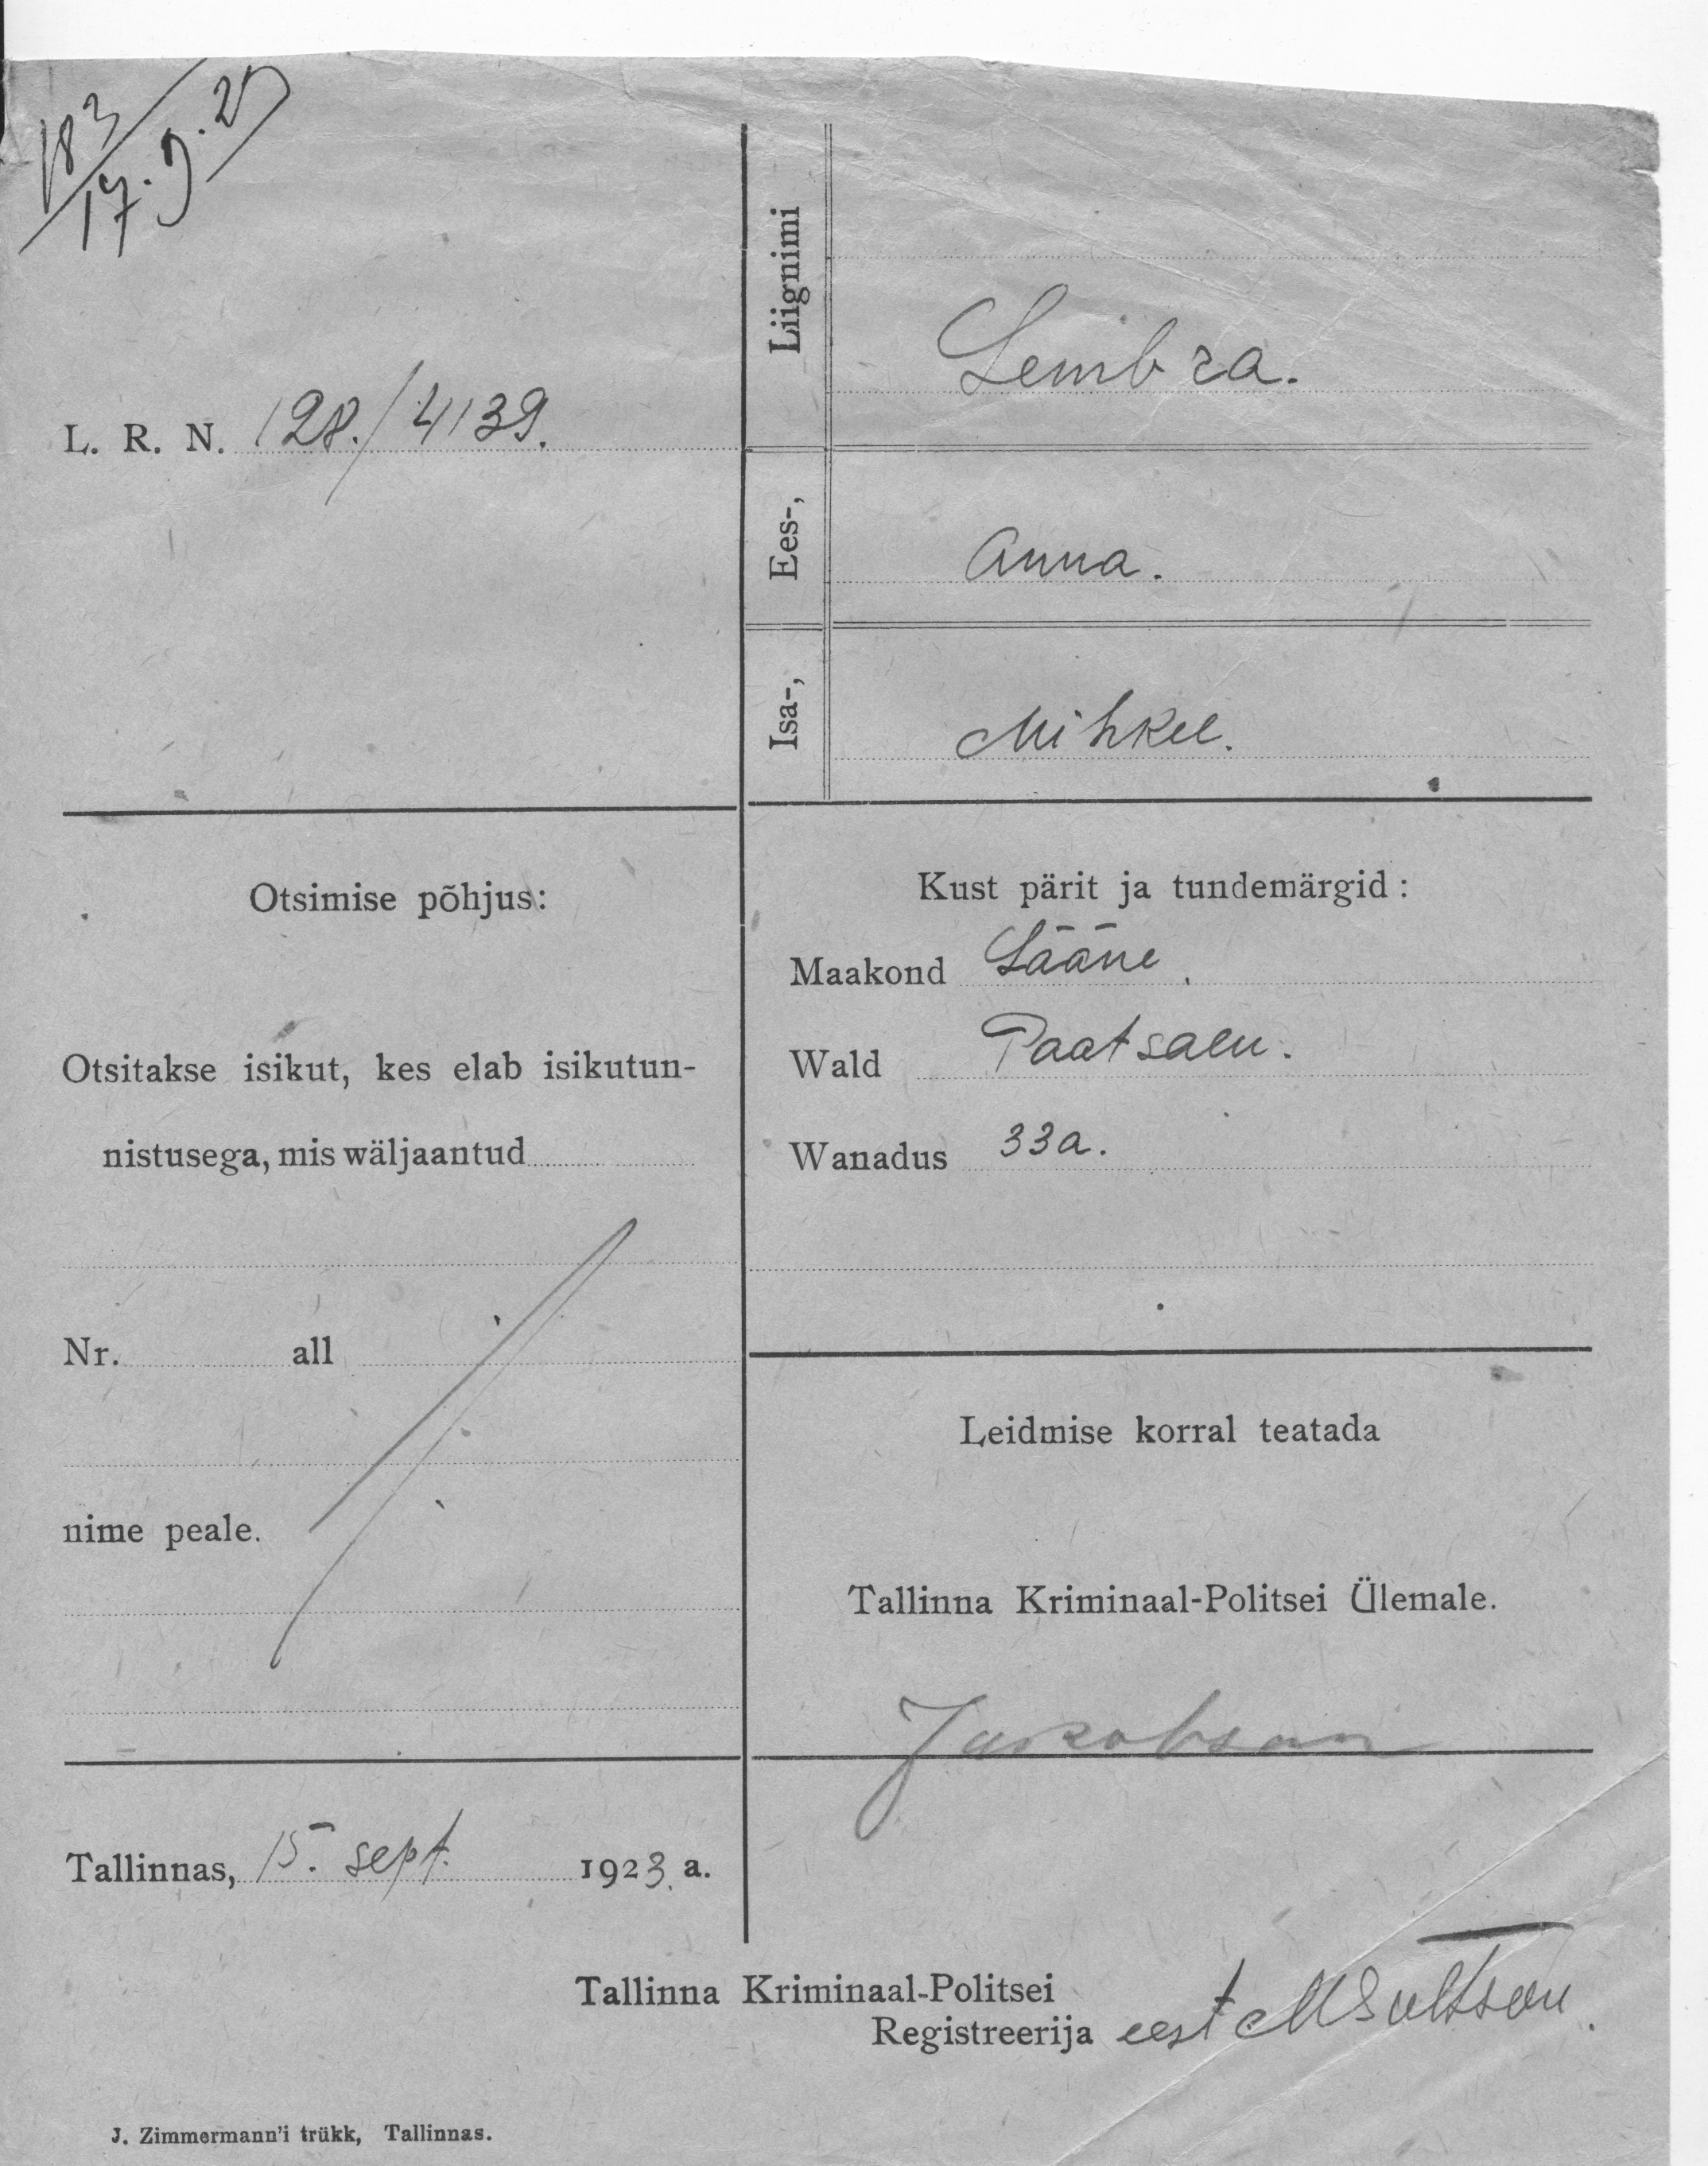 183
17.9.23
L. R. N. 128./4139.
Liignimi
Lembra.
Ees-,
Anna.
Isa-,
Mihkel.
Otsimise põhjus:
Otsitakse isikut, kes elab isikutun-
nistusega, mis wäljaantud
Nr. all
nime peale.
Tallinnas, 15. sept. 1923 a.
Kust pärit ja tundemärgid:
Maakond Lääne.
Wald Paatsalu.
Wanadus 33a.
Leidmise korral teatada
Tallinna Kriminaal-Politsei Ülemale.
Jakobson
Tallinna Kriminaal-Politsei
Registreerija eest
J. Zimmermann'i trükk, Tallinnas.